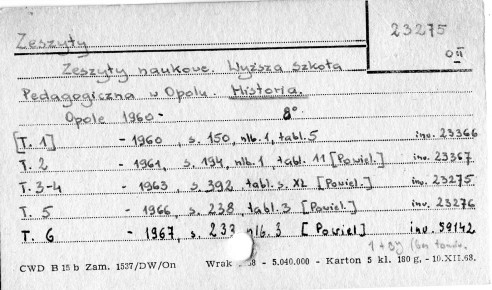 Zeszyty
23275
O II
Zeszyty naukowe. Wyższa szkoła
Pedagogiczna w Opolu. Historia.
Opole 1960- 8°
[T. 1] - 1960, s. 150, nlb. 1, tabl. 5 inv. 23366
T. 2 - 1961, s. 194, nlb. 1, tabl. 11 [Powiel.] inv. 23367
T. 3-4 - 1963, s. 392, tabl. s. XI [Powiel.] inv. 23275
T. 5 - 1966, s. 238, tabl. 3 [Powiel.] inv. 23276
T. 6 - 1967, s. 233 nlb. 3 [Powiel] inv. 59142
CWD B 15 b Zam. 1537/DW/On 68 - 5.040.000 - Karton 5 kl. 180 g. - 10.XII.68.